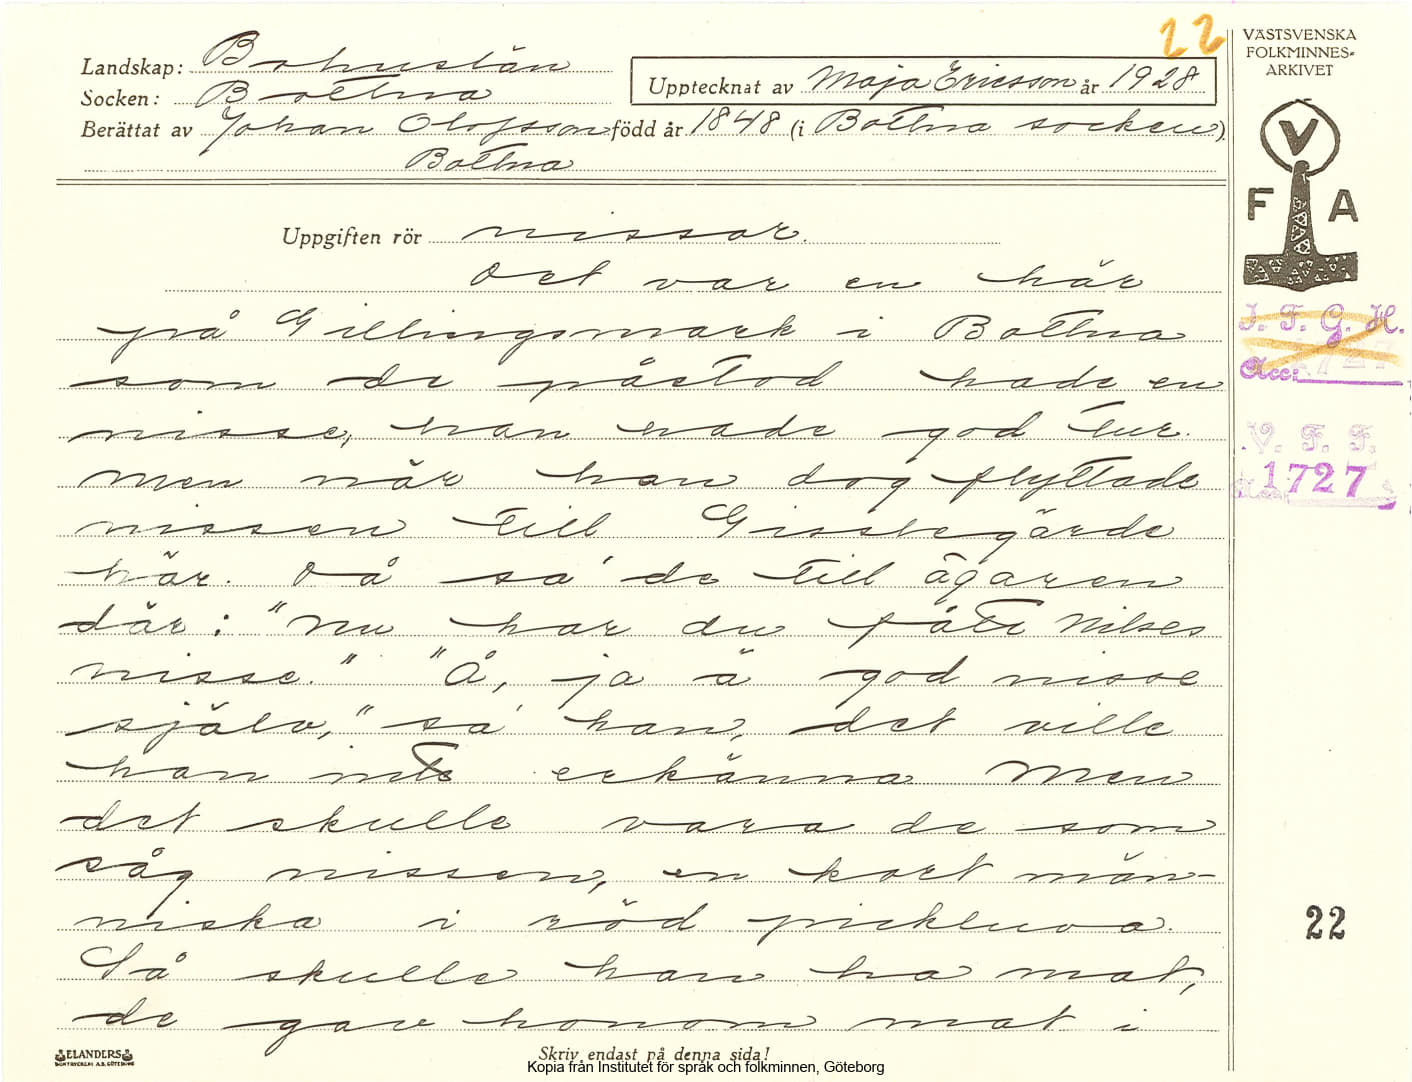 22
VÄSTSVENSKA
FOLKMINNES-
ARKIVET
Landskap: Bohuslän
Socken: Bottna
Upptecknat av Maja Ericsson år 1928
Berättat av Johan Olofsson född år 1848 (i Bottna socken).
Bottna
V
F A
Uppgiften rör nissar.
Det var en här
på Gillingsmark i Bottna
som de påstod hade en
nisse, han hade god tur.
Men när han dog flyttade
nissen till Gisslegärde
här. Då sa' de till ägaren
där: "Nu har du fått Nilses
nisse." "Å, ja ä god nisse
själv," sa' han, det ville
han inte erkänna. Men
det skulle vara de som
såg nissen, en kort män-
niska i röd pickluva.
Så skulle han ha mat,
de gav honom mat i
I. F. G. H.
Acc: 1727
V. F. F.
1727
22
ELANDERS
BOKTRYCKERI A.B. GÖTEBORG
Skriv endast på denna sida!
Kopia från Institutet för språk och folkminnen, Göteborg